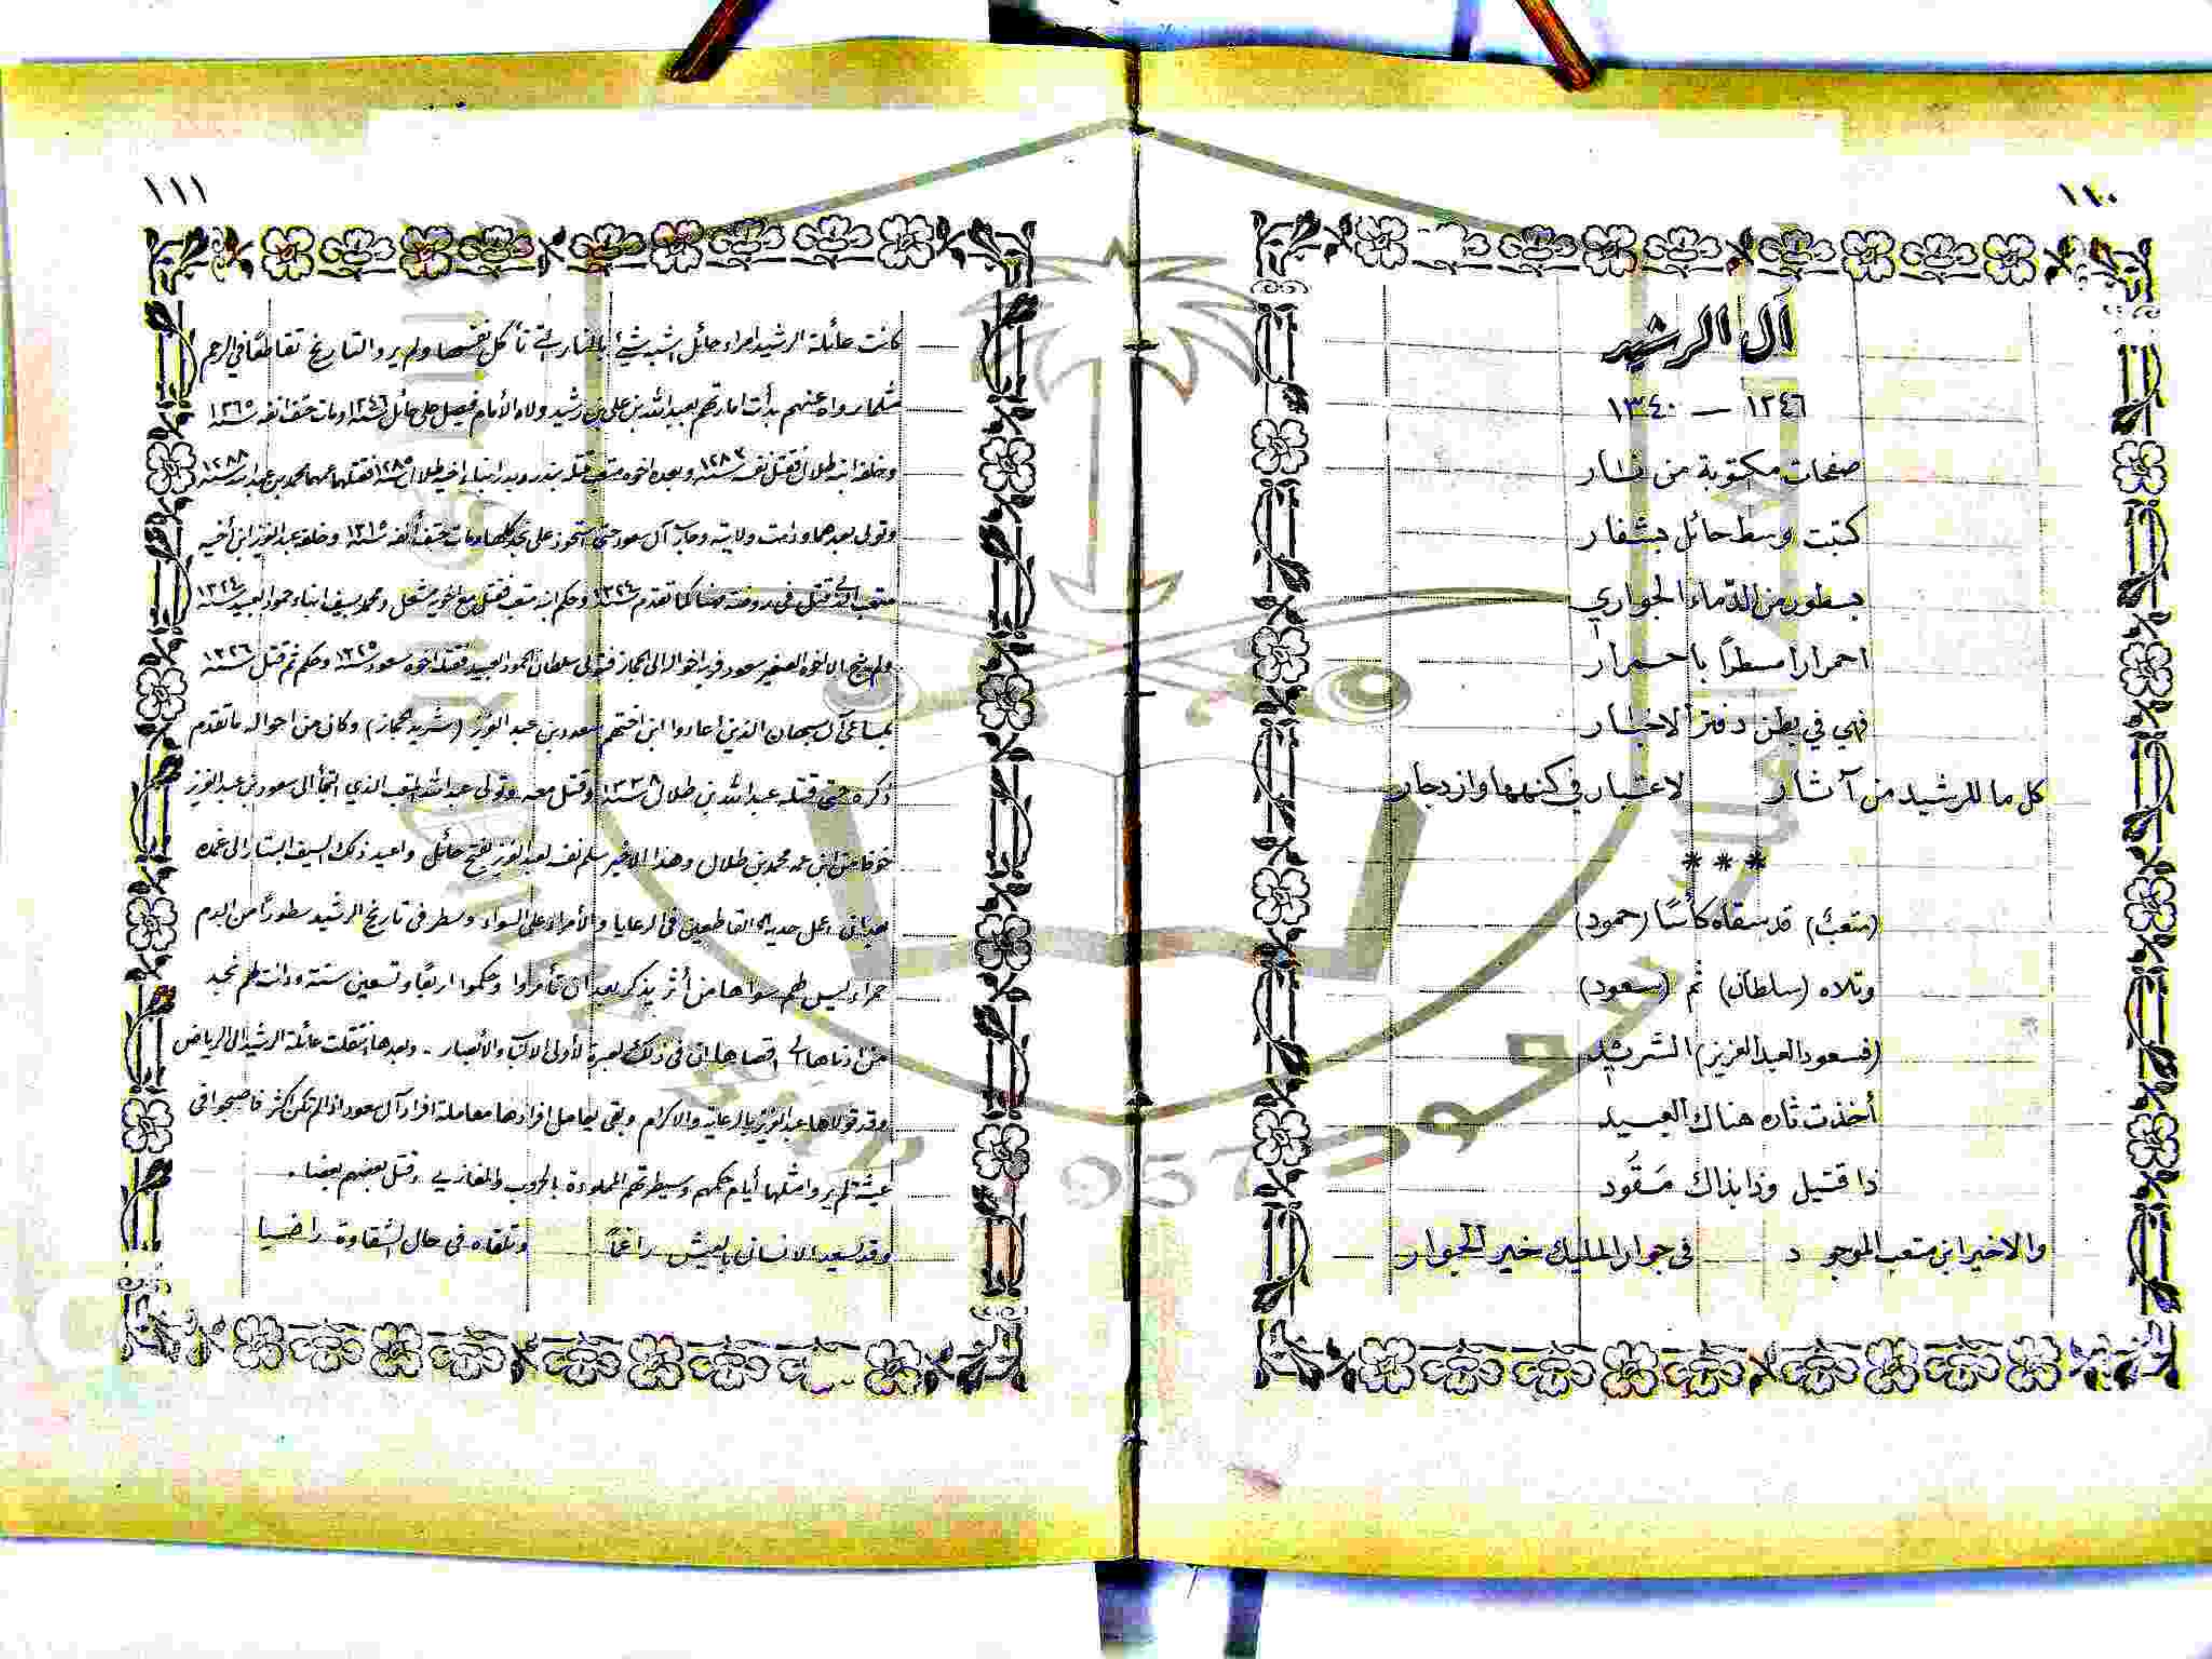 ١١٠
آل الرشيد
١٢٤٦ — ١٣٤٠
صفحات مكتوبة من نار
كتبت وسط حائل بشفار
بسطور من الدماء الجواري
احمرارا سطراً باحمرار
فهي في بطن دفتر الاخبار
كل ما للرشيد من آثار لاعتبار في كنهها وازدجار
***
(متعب) قد سقاه كأسًا (حمود)
وتلاه (سلطان) ثم (سعود)
(فسعود العبد العزيز) الشريد
أخذت ثاره هناك العبيد
ذا قتيل وذا بذاك مَقُود
والاخير ابن متعب الموجود في جوار المليك خير الجوار
١١١
كانت عائلة الرشيد امراء حائل اشبه شيء بالنار التي تأكل نفسها ولم يرو التاريخ تقاطعًا في الرحم
مثلما رواه عنهم بدأت امارتهم بعبد الله بن علي بن رشيد ولاه الأمام فيصل على حائل سنة ١٢٤٦ ومات حتف انفه سنة ١٢٦٥
وخلفه ابنه طلال فقتل نفسه سنة ١٢٨٣ وبعده اخوه متعب قتله بندر وبدر ابناء اخيه طلال سنة ١٢٨٥ فقتلهما عمهما محمد بن عبد الله سنة ١٢٨٨
وتولى بعدهما ودامت ولايته وحارب آل سعود حتى استحوذ على نجد كلها ومات حتف أنفه سنة ١٣١٥ وخلفه عبد العزيز ابن أخيه
متعب الذي قتل في روضة مهنا كما تقدم سنة ١٣٢٤ وحكم ابنه متعب فقتل مع اخويه مشعل ومحمد بسيف ابناء حمود العبيد سنة ١٣٢٤
ولم ينج الا اخوه الصغير سعود فر به اخواله الى الحجاز فتولى سلطان الحمود العبيد فقتله اخوه سعود سنة ١٣٢٥ وحكم ثم قتل سنة ١٣٢٦
بمساعي آل سبهان الذين اعادوا ابن اختهم سعود بن عبد العزيز (شريد الحجاز) وكان من احواله ما تقدم
ذكره حتى قتله عبد الله بن طلال سنة ١٣٣٨ وقتل معه وتولى عبد الله المتعب الذي التجأ الى سعود بن عبد العزيز
خوفا من ابن عمه محمد بن طلال وهذا الاخير سلم نفسه لعبد العزيز بفتح حائل واعيد ذلك السيف البتار الى غمده
بعد ان عمل حديه القاطعين في الرعايا والأمراء على السواء وسطر في تاريخ الرشيد سطورًا من الدم
حمراء ليس لهم سواها من أثر يذكر بعد ان تأمروا وحكموا اربعًا وتسعين سنة ودانت لهم نجد
من ادناها الى اقصاها ان في ذلك لعبرة لأولى الالباب والأبصار . وبعدها انتقلت عائلة الرشيد الى الرياض
وقد تولاها عبد العزيز بالرعاية والاكرام وبقى يعامل افرادها معاملة افراد آل سعود اذا لم تكن اكثر فاصبحوا في
عيشة لم يروا مثلها أيام حكمهم وسيطرتهم المملوءة بالحروب والمغازي وقتل بعضهم بعضا .
وقد يسعد الانسان بالعيش راغمًا وتلقاه في حال الشقاوة راضيا